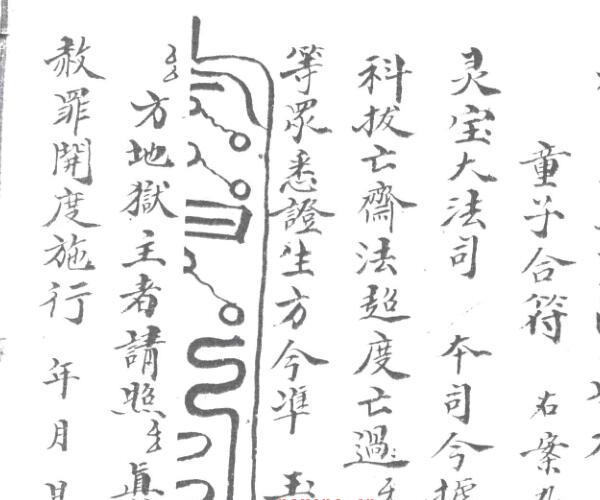 童子合符 右案
灵宝大法司 本司今據
科拔亡齋法超度亡過
等眾悉證生方今準
方地獄主者請照 真
赦罪開度施行 年月日